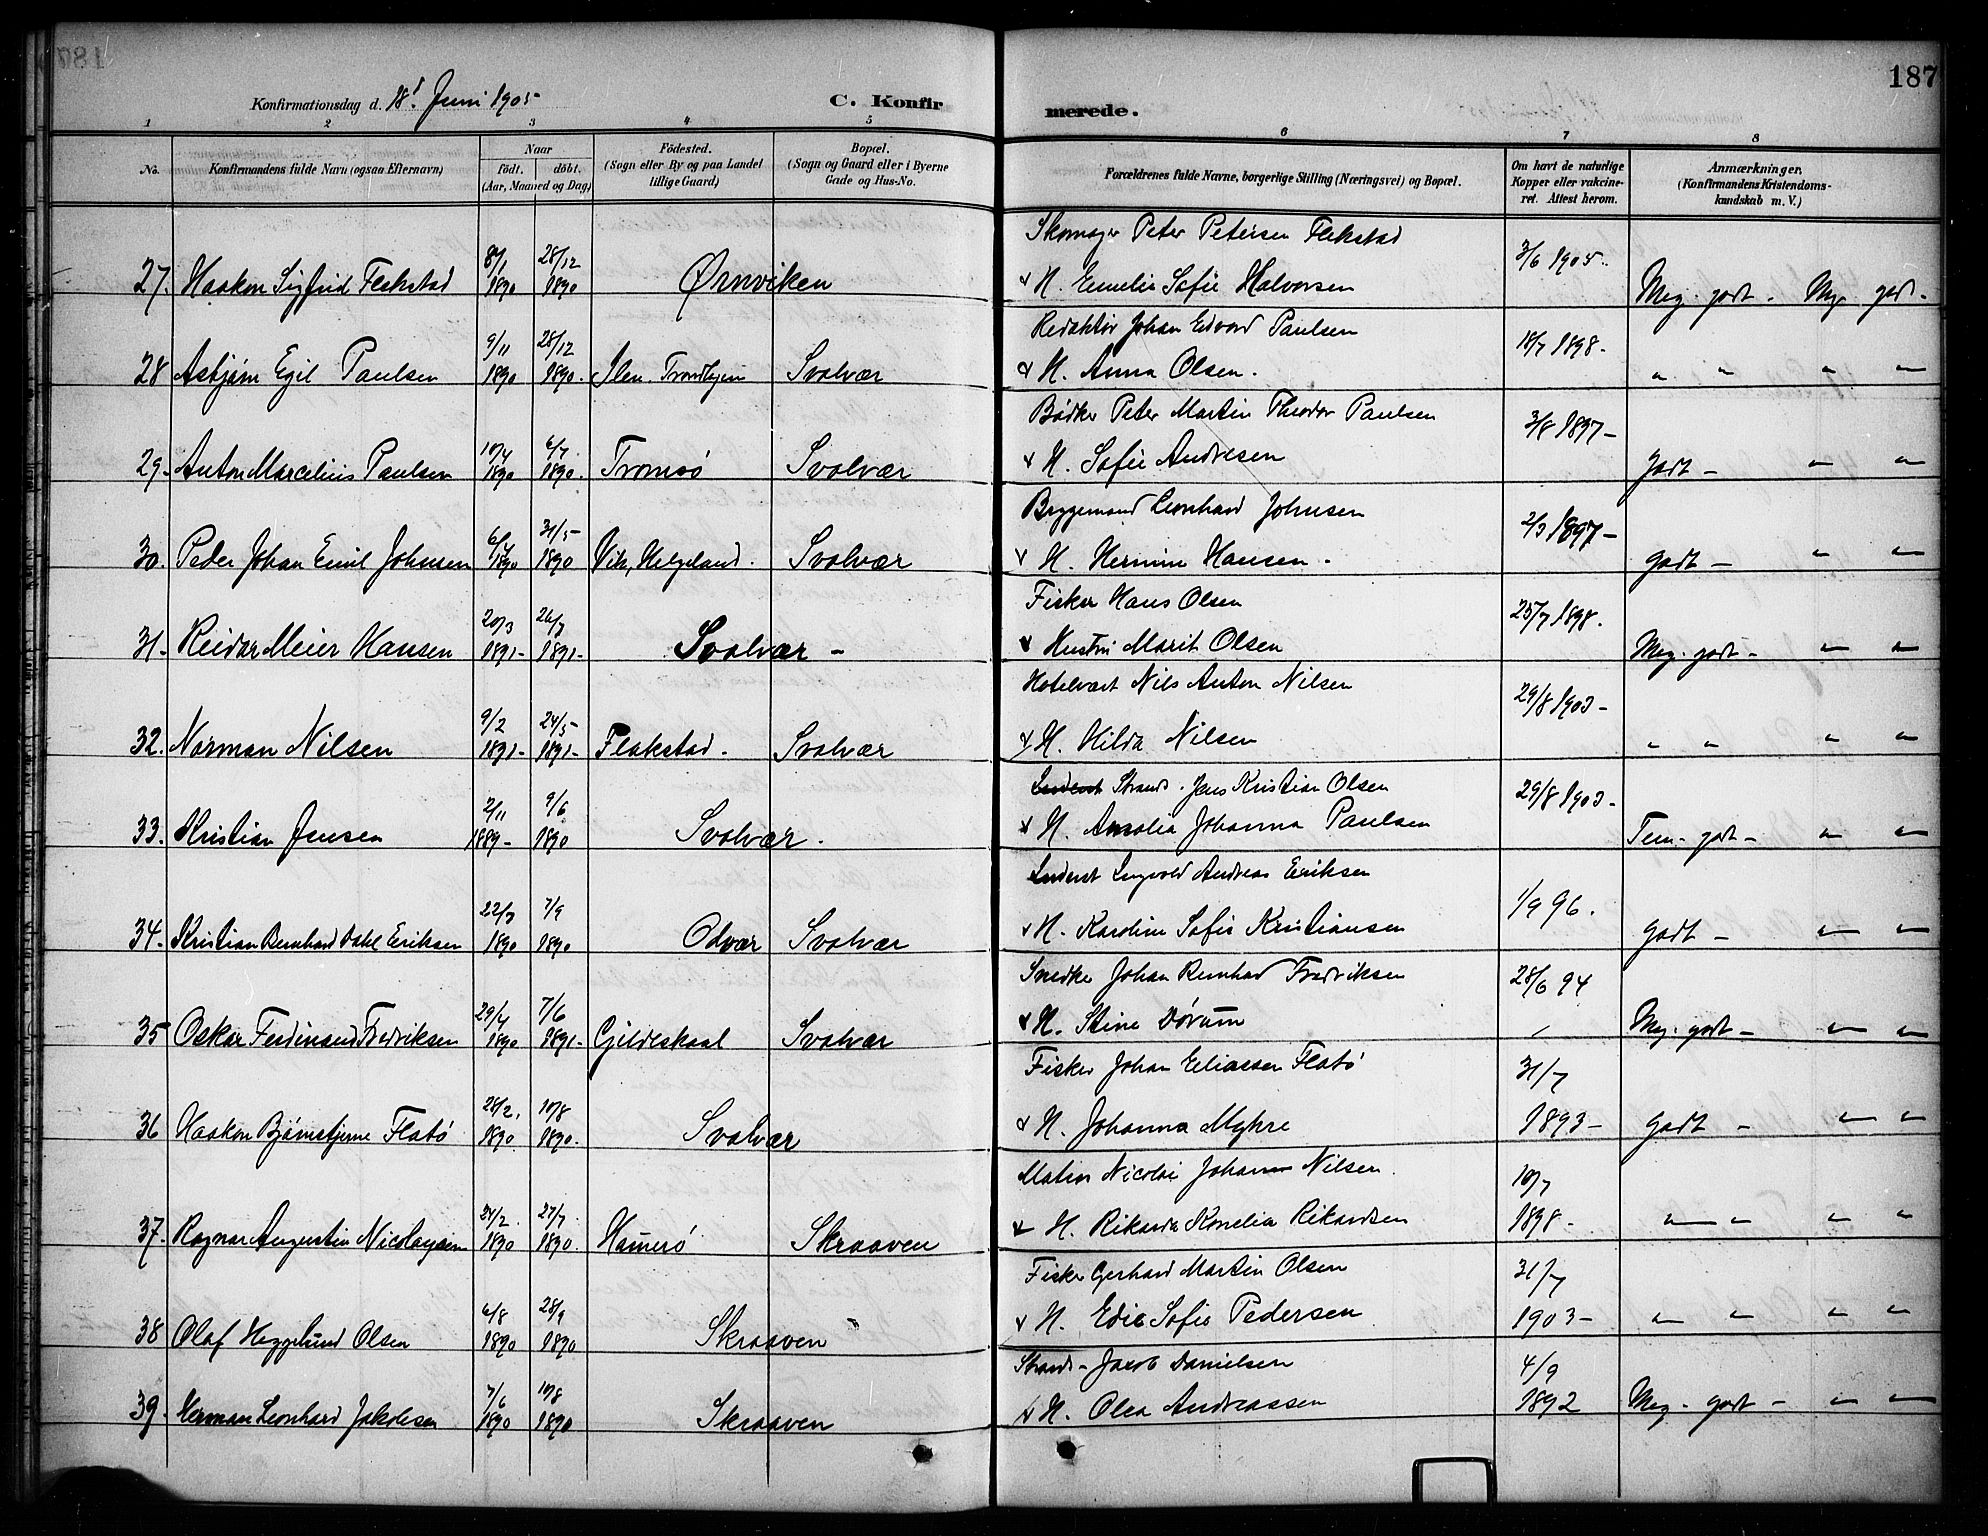 187
Konfirmationsdag d. 18. Juni 1905 C. Konfirmerede.
1 2 3 4 5 6 7 8
No. Konfirmandens fulde Navn (ogsaa Efternavn) Naar født. døbt. (Aar, Maaned og Dag) Fødested. (Sogn eller By og paa Landet tillige Gaard) Bopæl. (Sogn og Gaard eller i Byerne Gade og Hus-No. Forældrenes fulde Navne, borgerlige Stilling (Næringsvei) og Bopæl. Om havt de naturlige Kopper eller vakcineret. Attest herom. Anmærkninger. (Konfirmandens Kristendomskundskab m. V.)
Skomager Peter Petersen Flekstad
27. Haakon Sigfrid Flekstad 8/1 1890 28/12 1890 Ørnviken & H. Emelie Sofie Halvorsen 3/6 1905. Meg. godt - Meg godt -
Redaktør Johan Edvard Paulsen
28 Asbjørn Egil Paulsen 9/11 1890 28/12 1890. Ilen. Trondhjem Svolvær & H. Anna Olsen. 18/7 1898. " " " "
Bødker Peter Martin Theodor Paulsen
29. Anton Marcelius Paulsen 10/4 1890 6/7 1890. Tromsø Svolvær & H. Sofie Andresen 3/8 1897 - godt - " "
Bryggemand Leonhard Johnsen
30. Peder Johan Emil Johnsen 6/4 1890 31/5 1890 Vik, Helgeland. Svolvær & H. Hermine Hansen. 2/3 1897 - godt - " "
Fisker Hans Olsen
31. Reidar Meier Hansen 20/3 1891- 26/7 1891- Svolvær - & Hustru Marit Olsen 25/7 1898. Meg. godt - " "
Hotelvært Nils Anton Nilsen
32. Norman Nilsen 9/2 1891- 24/5 1891- Flakstad. Svolvær & H. Hilda Nilsen 29/8 1903 - " " " "
Strands. Jens Kristian Olsen
33. Kristian Jensen 2/11 1889- 9/6 1890 Svolvær. & H. Amalia Johanna Paulsen 29/8 1903 - Tem. godt - " "
Inderst Ingvold Andreas Eriksen
34. Kristian Bernhard Dahl Eriksen 22/7 1890 7/9 1890 Odvær Svolvær & H. Karoline Sofie Kristiansen 1/9 96. godt - " "
Snedker Johan Bernhard Fredriksen
35 Oskar Ferdinand Fredriksen 29/4 1890 7/6 1891- Gildeskaal Svolvær & H. Stine Dørum 28/6 94 Meg. godt - " "
Fisker Johan Eliassen Flatø
36 Haakon Bjørnstjerne Flatø 28/2. 1890 10/8 1890. Svolvær & H. Johanna Myhre 31/7 1893 - godt - " "
Matros Nicolai Johan Nilsen
37. Ragnar Augustin Nicolaysen 24/2. 1890 27/7 1890. Hamerø Skraaven & H. Rikarda Kornelia Rikardsen 10/7 1898 - " " " "
Fisker Gerhard Martin Olsen
38 Olaf Heggelund Olsen 6/8 1890 28/9 1890 Skraaven & H. Edie Sofie Pedersen 31/7 1903 - " " " "
Strands - Jacob Danielsen
39. Herman Leonhard Jakobsen 7/6 1890 10/8 1890 Skraaven & H. Olea Andreassen 4/9 1892 Meg. godt - " "